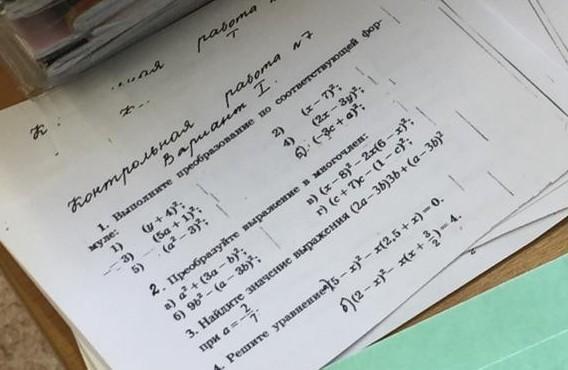 работа
Контрольная работа №7
Вариант I.
1. Выполните преобразование по соответствующей фор-
муле:
1) (y + 4)²; 2) (x − 7)²;
3) (5a + 1)²; 4) (2x − 3y)²;
5) (a² − 3)²; 6) (−3c + a)²;
2. Преобразуйте выражение в многочлен:
а) a² + (3a − b)²; в) (x − 8)² − 2x(6 − x)²;
б) 9b² − (a − 3b)²; г) (c + 7)c − (1 − c)²;
3. Найдите значение выражения (2a − 3b)3b + (a − 3b)²
при a = −2/7.
4. Решите уравнение а) (5 − x)² − x(2,5 + x) = 0.
б) (2 − x)² − x(x + 3/2) = 4.